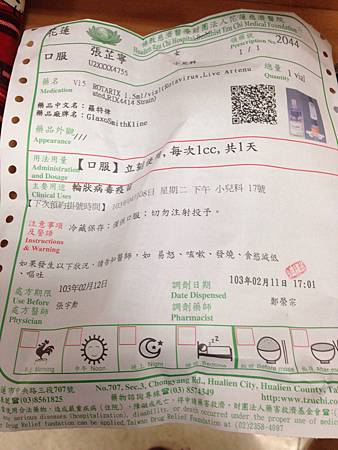 花蓮
佛教慈濟醫療財團法人花蓮慈濟醫院
Hualien Tzu Chi Hospital, Buddhist Tzu Chi Medical Foundation
口服
張芷寧
女
小兒科
Prescription No. 2044
1 / 1
藥名 V15 ROTARIX 1.5ml/vial(Rotavirus,Live Attenu
Medication
ated,RIX4414 Strain)
總量
Quantity
1 Vial
藥品中文名：羅特律
藥品廠牌名：GlaxoSmithKline
藥品外觀
Appearance
///
用法用量
Administration
and Dosage
【口服】立刻使用，每次1cc，共1天
主要用途
Clinical Uses
輪狀病毒疫苗
【下次預約掛號時間】
08日 星期二 下午 小兒科 17號
注意事項
及警語
Instructions
& Warning
冷藏保存；僅供口服；切勿注射投予。
如果發生以下狀況，請告知醫師，如 易怒、咳嗽、發燒、食慾減低
、嘔吐
處方期限
Use Before
103年02月12日
調劑日期
Date Dispensed
103年02月11日 17:01
處方醫師
Physician
張宇勳
調劑藥師
Pharmacist
鄭榮宗
中午 Noon
晚 Night
Bedtime
蓮市中央路三段707號
No.707, Sec.3, Chongyang Rd., Hualien City, Hualien County, Ta
(03)8561825
藥物諮詢專線☎(03) 8574349
http://www.tzuchi.com
serious diseases (hospitalization), disability, or death occurred under the proper use of medic
Drug Relief fundation can be applied. Taiwan Drug Relief Foundation at (02)2358-4097